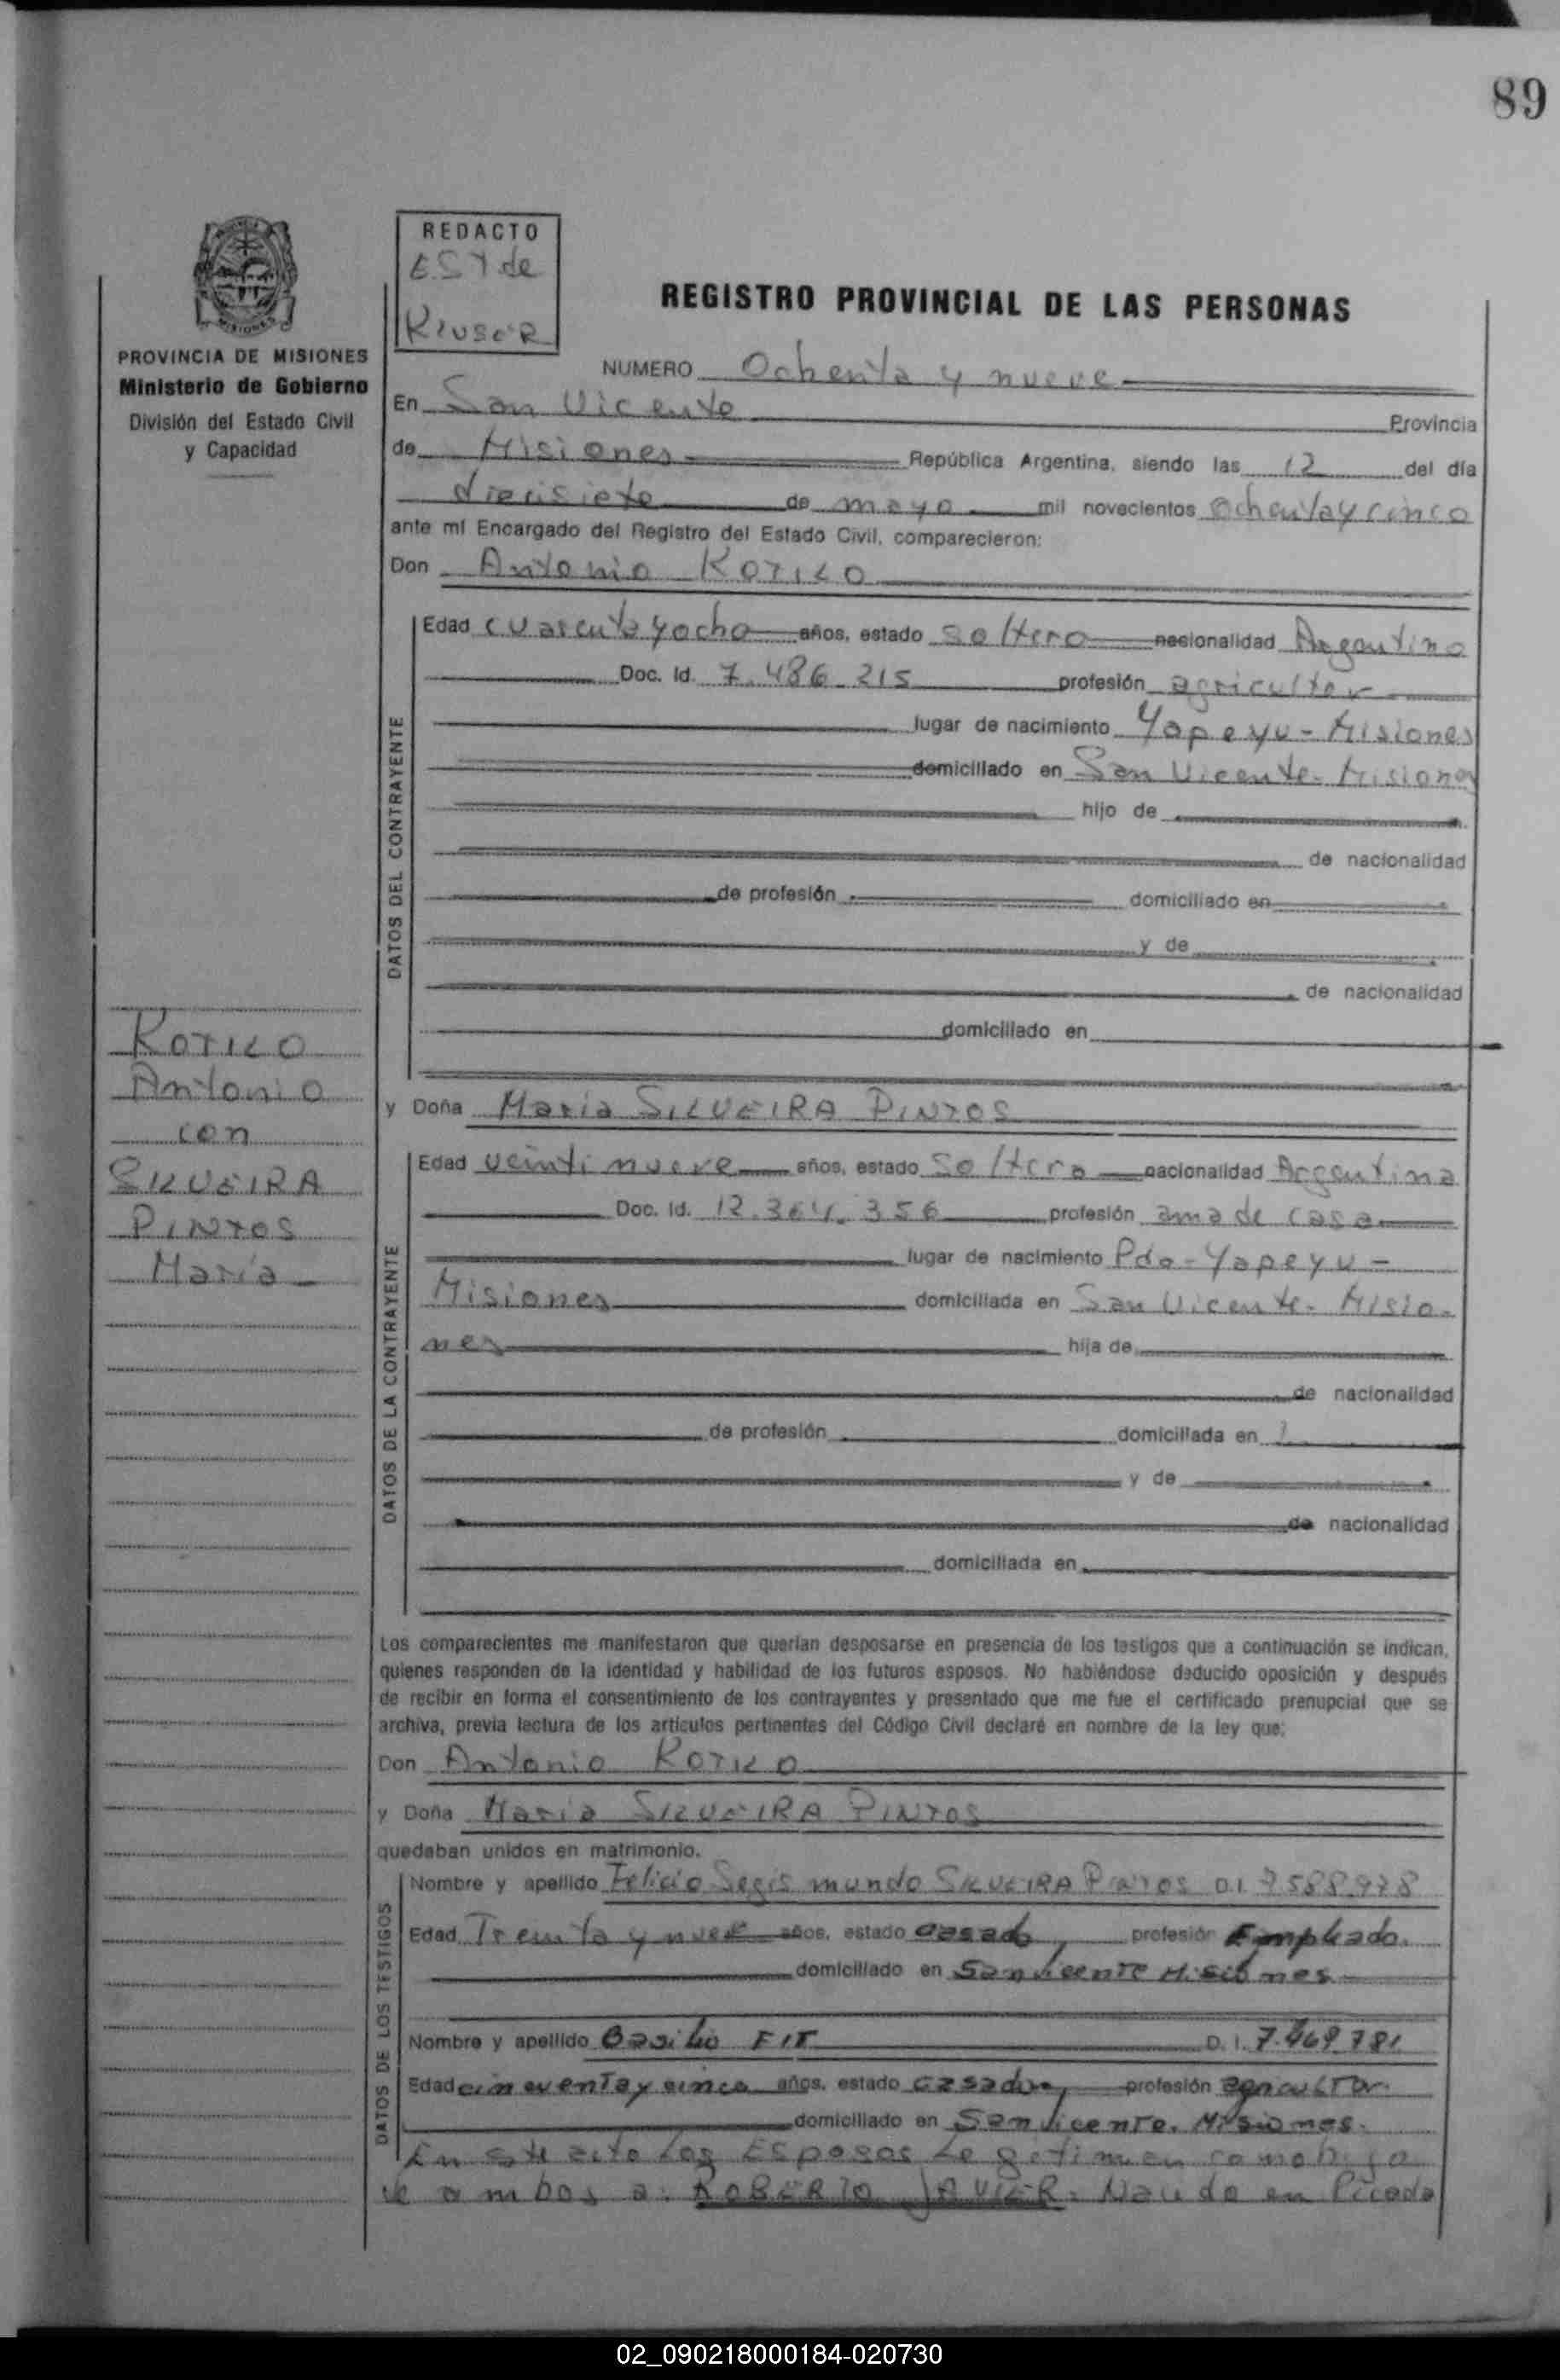 89
REDACTO
EST de
REGISTRO PROVINCIAL DE LAS PERSONAS
PROVINCIA DE MISIONES
Ministerio de Gobierno
División del Estado Civil
y Capacidad
NUMERO Ochenta y nueve
En San Vicente Provincia
de Misiones República Argentina, siendo las 12 del día
diecisiete de mayo mil novecientos ochenta y cinco
ante mí Encargado del Registro del Estado Civil, comparecieron:
Don Antonio KOTILO
DATOS DEL CONTRAYENTE
Edad cuarenta y ocho años, estado soltero nacionalidad Argentino
Doc. Id. 7.486.215 profesión agricultor
lugar de nacimiento Yapeyu - Misiones
domiciliado en San Vicente - Misiones
hijo de
de nacionalidad
de profesión domiciliado en
y de
de nacionalidad
domiciliado en
KOTILO
Antonio
con
SILVEIRA
PINTOS
Maria
y Doña Maria SILVEIRA PINTOS
DATOS DE LA CONTRAYENTE
Edad veintinueve años, estado soltera nacionalidad Argentina
Doc. Id. 12.364.356 profesión ama de casa
lugar de nacimiento Pdo - Yapeyu -
Misiones domiciliada en San Vicente - Misio-
nes hija de
de nacionalidad
de profesión domiciliada en
y de
de nacionalidad
domiciliada en
Los comparecientes me manifestaron que querían desposarse en presencia de los testigos que a continuación se indican,
quienes responden de la identidad y habilidad de los futuros esposos. No habiéndose deducido oposición y después
de recibir en forma el consentimiento de los contrayentes y presentado que me fue el certificado prenupcial que se
archiva, previa lectura de los artículos pertinentes del Código Civil declaré en nombre de la ley que:
Don Antonio KOTILO
y Doña Maria SILVEIRA PINTOS
quedaban unidos en matrimonio.
DATOS DE LOS TESTIGOS
Nombre y apellido Felicio Segismundo SILVEIRA PINTOS D.I. 7588.978
Edad Treinta y nueve años, estado casado, profesión Empleado.
domiciliado en San Vicente Misiones
Nombre y apellido Basilio FIT D.I. 7.469.781
Edad cincuenta y cinco años, estado casado, profesión agricultor.
domiciliado en San Vicente. Misiones.
En este acto los Esposos Legitiman como hijo
de ambos a: ROBERTO JAVIER: Nacido en Picada
02_090218000184-020730